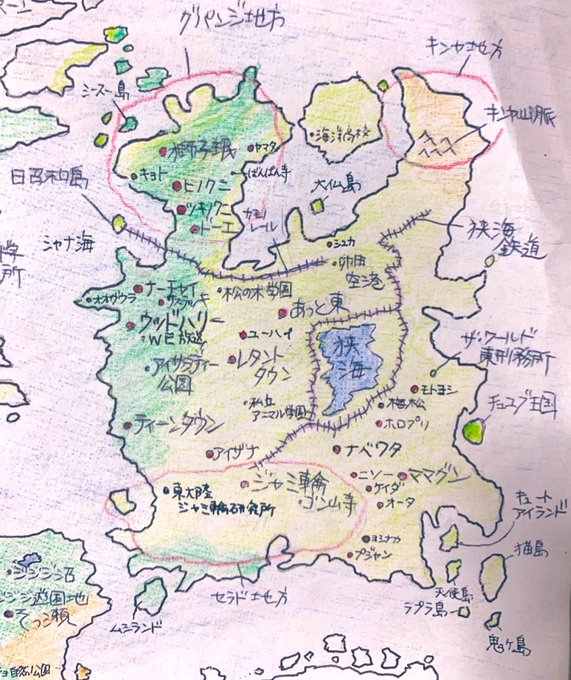 グリパンジ地方
キンヤ地方
シースー島
獅子眠
ヤマタ
海洋高校
キンヤ山脈
キョト
ぱんぱん寺
ヒノクニ
大仏島
日召和島
ツキノクニ
ドーエ
モノレール
狭海
鉄道
シャナ海
シュカ
卵田
空港
ナーナセイ
松の木学園
オオザウラ
あっと東
ウッドハリー
WE放送
ユーハイ
狭
海
ザ・ワールド
東刑務所
アイサツティー
公園
レタント
タウン
モトヨシ
私立
アニマル学園
梅松
チュスブ王国
ティーンタウン
ホロプリ
アイザナ
ナベワタ
ジャミ輪
ゴン山寺
ニソー
ママグン
東大陸
ジャミ輪石研究所
ケイダ
オータ
キュート
アイランド
ヨシナカ
プジャン
猫島
ジジジジ沼
ジジジ遊園地
そっこ瀬
天使島
ラプラ島
ムシランド
セラド地方
鬼ヶ島
自然公園